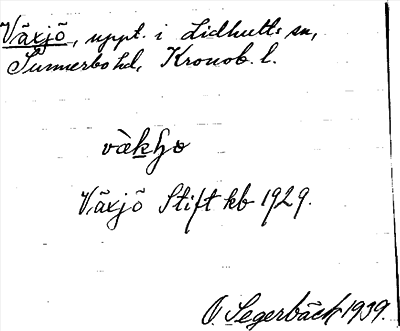 Växjö, uppt. i Lidhults sn,
Sunnerbo hd, Kronob. l.
Växjö Stift kb 1929.
O. Segerbäck 1939.